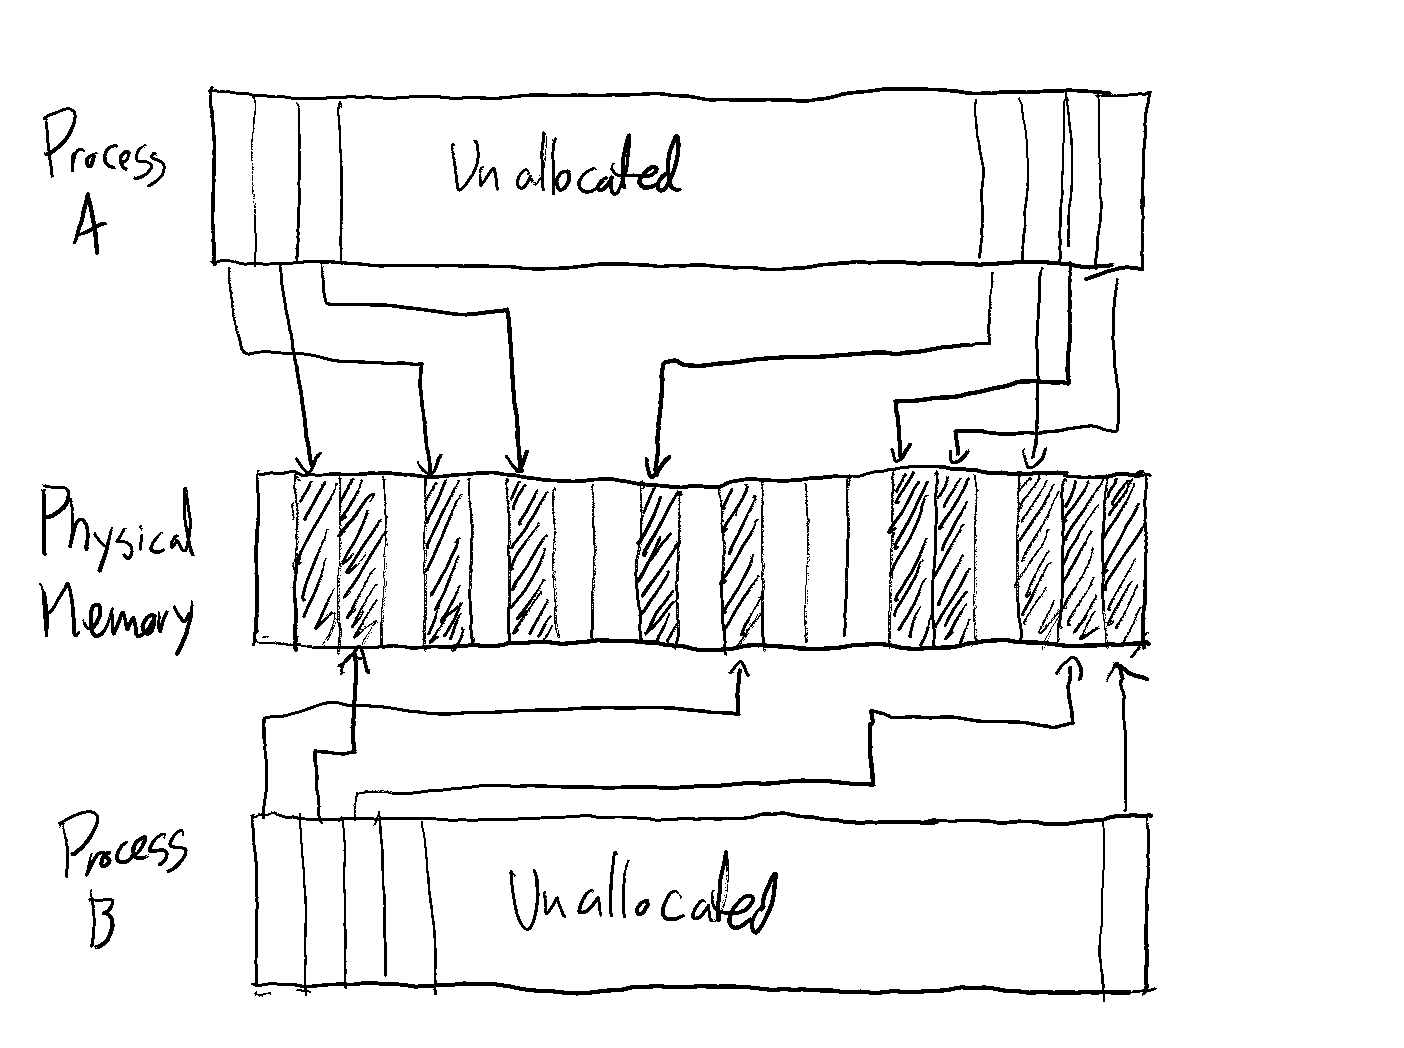 Process
A
Unallocated
Physical
Memory
Process
B
Unallocated